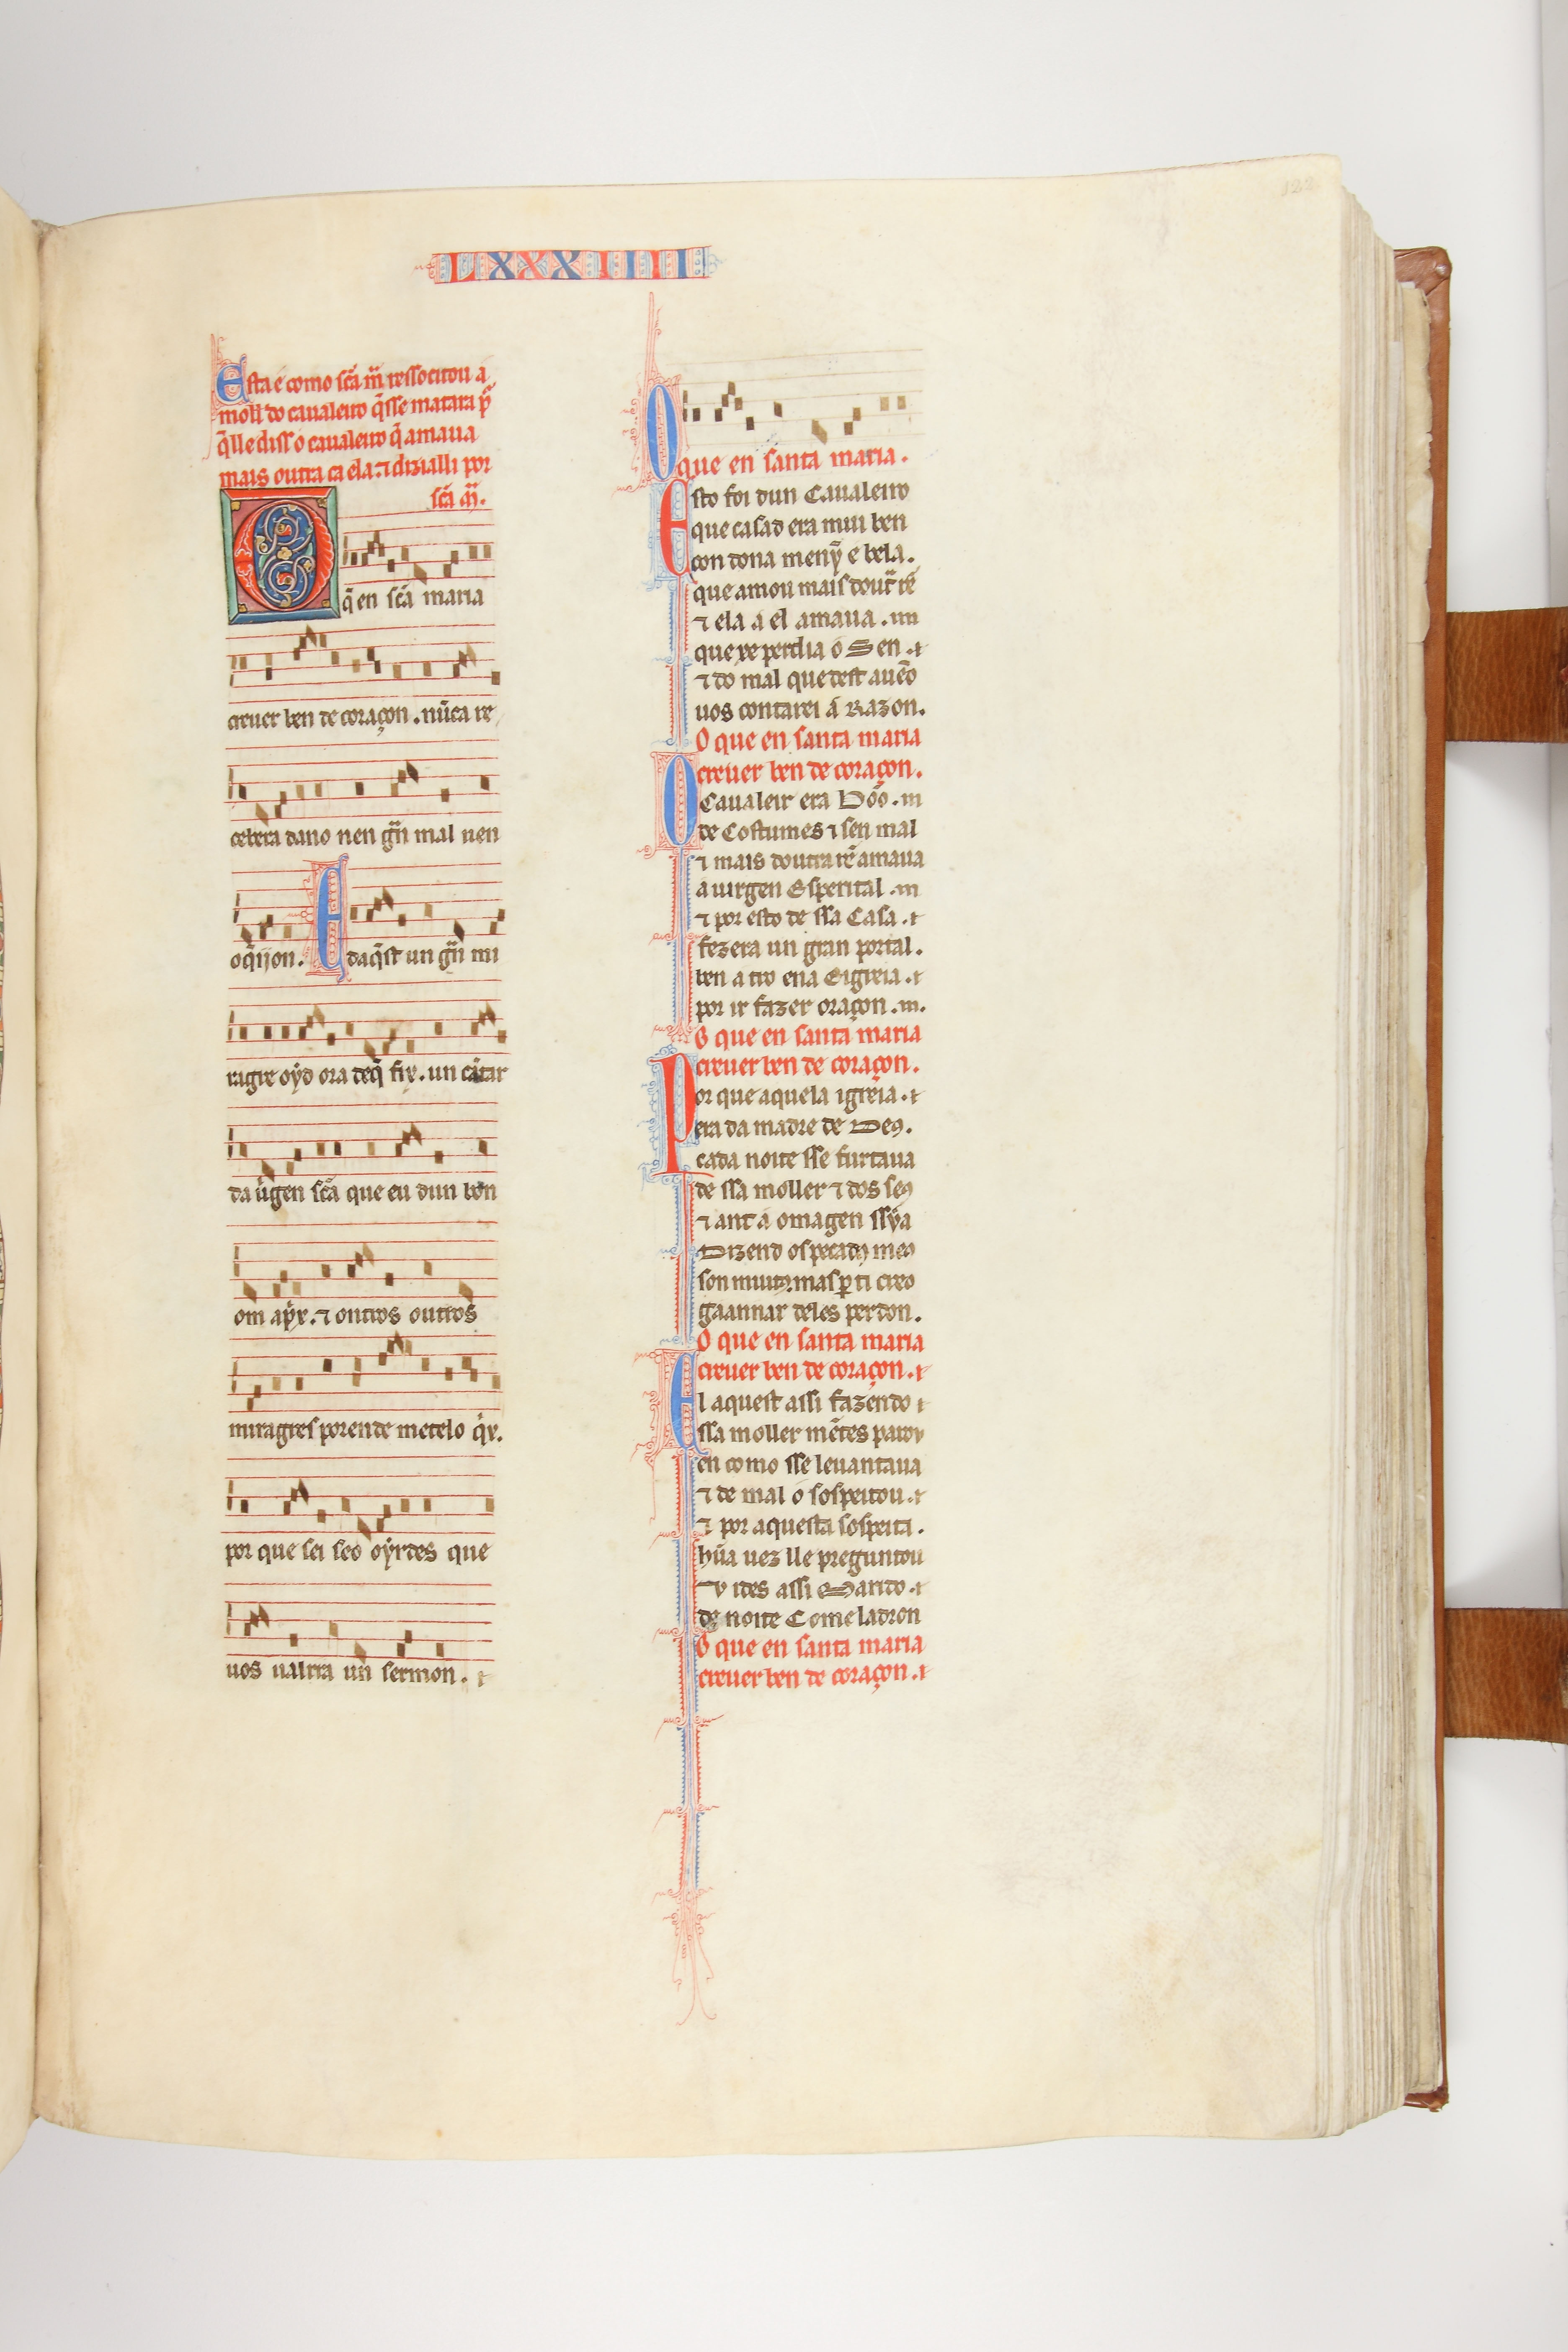 LXXXIIII
122
Esta e como sc̃a m̃ ressocitou a
moll̃ do caualeiro q̃sse matara p̃
q̃lle diss o caualeiro q̃ amaua
mais outra ca ela ⁊ dizialli por
sc̃a m̃.
O q̃ en sc̃a maria
creuer ben de coraçon. nũca re
cebera dano nen grã mal nen
oq̃ijon. E daq̃st un grã mi
ragre oýd ora deq̃ fix. un cãtar
da uirgen sc̃a que eu dun bon
om apr̃x. ⁊ ontros outros
miragres porende metelo q̃x.
por que sei seo oýrdes que
uos ualrra un sermon.
O que en santa maria.
Esto foi dun Caualeiro
que casad era mui ben
con dona menỹ e bela.
que amou mais doutr̃ rẽ
⁊ ela a el amaua.
que xe perdia o Sen.
⁊ do mal que dest auẽo
uos contarei a Razon.
O que en santa maria
creuer ben de coraçon.
O Caualeir era Bõo.
de Costumes ⁊ sen mal
⁊ mais doutra rẽ amaua
a uirgen Esperital.
⁊ por esto de ssa Casa.
fezera un gran portal.
ben atro ena Eigreia.
por ir fazer oraçon.
O que en santa maria
creuer ben de coraçon.
Por que aquela igreia.
era da madre de Deꝯ.
cada noite sse furtaua
de ssa moller ⁊ dos seꝯ
⁊ ant a omagen ssýa
Dizend os pecadꝯ meꝯ
son muitꝯ. mas ꝑ ti creo
gaannar deles perdon.
O que en santa maria
creuer ben de coraçon.
El aquest assi fazendo
ssa moller mẽtes parou
en como sse leuantaua
⁊ de mal o sospeitou.
⁊ por aquesta sospeita.
hũa uez lle preguntou
V ides assi Marido.
de noite Come ladron
O que en santa maria
creuer ben de coraçon.